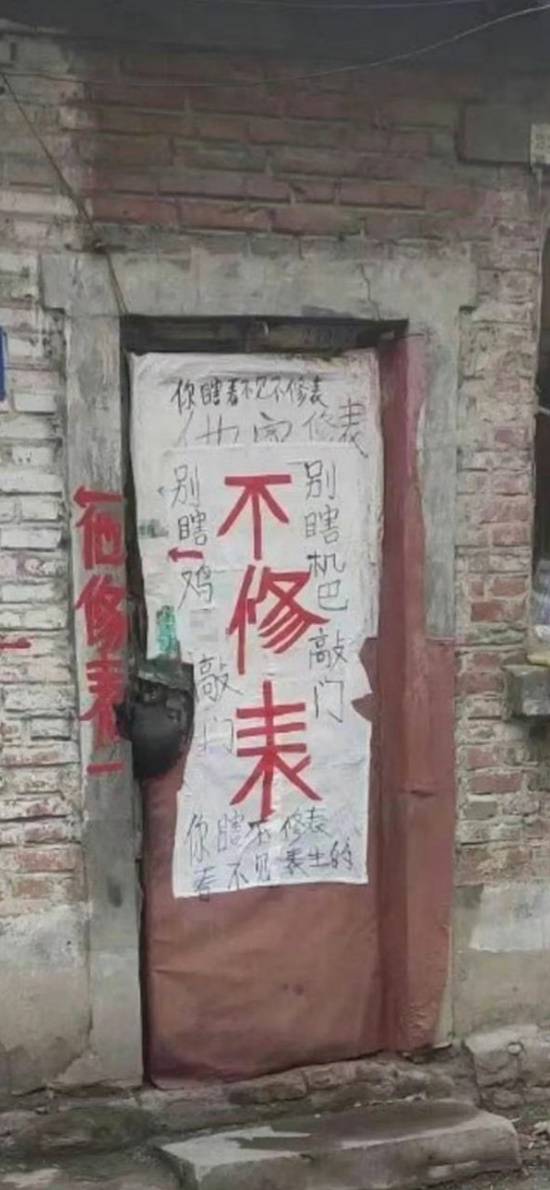 你瞎看不见不修表
他向修表
不修表
别瞎机巴敲门
别瞎鸡
敲门
他修表
你瞎不修表
看不见表土的